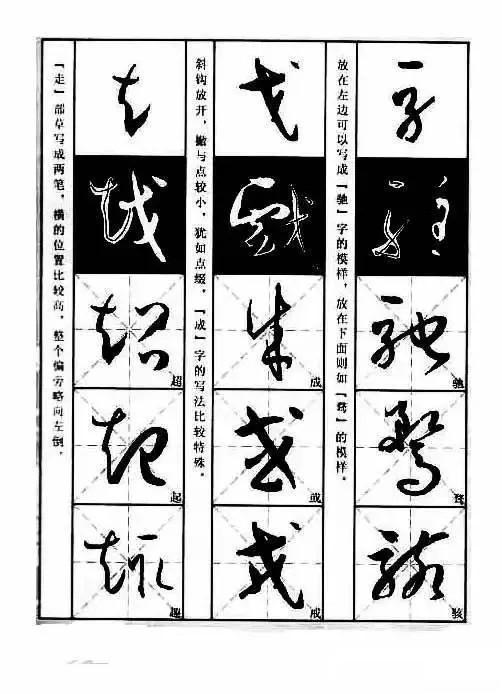 驰
骛
骇
放在左边可以写成「驰」字的模样，放在下面则如「骛」的模样。
戈
成
或
斜钩放开，撇与点较小，犹如点缀。「成」字的写法比较特殊。
超
起
趣
「走」部草写成两笔，横的位置比较高，整个偏旁略向左倒。